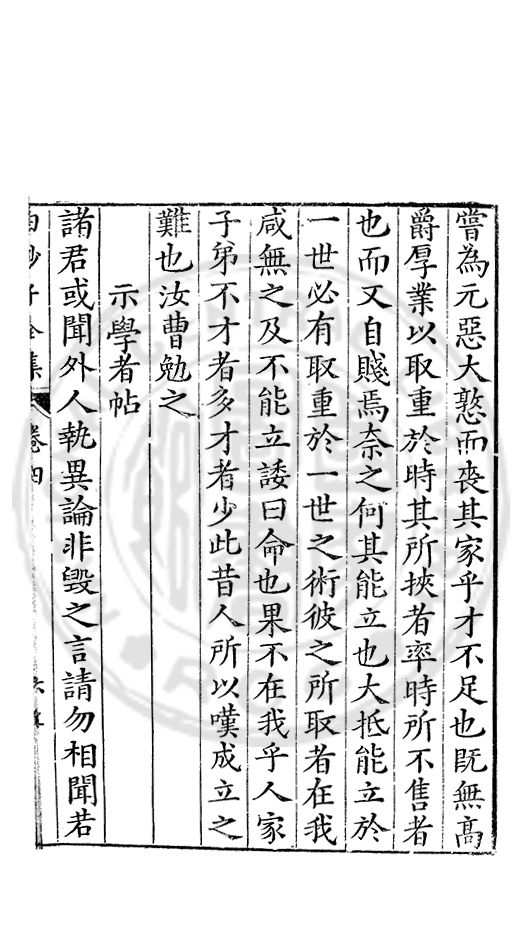 嘗為元惡大憝而喪其家乎才不足也既無高
爵厚業以取重於時其所挾者率時所不售者
也而又自賤焉奈之何其能立也大抵能立於
一世必有取重於一世之術彼之所取者在我
咸無之及不能立諉曰命也果不在我乎人家
子弟不才者多才者少此昔人所以嘆成立之
難也汝曹勉之
示學者帖
諸君或聞外人執異論非毀之言請勿相聞若
白沙子全集 卷四